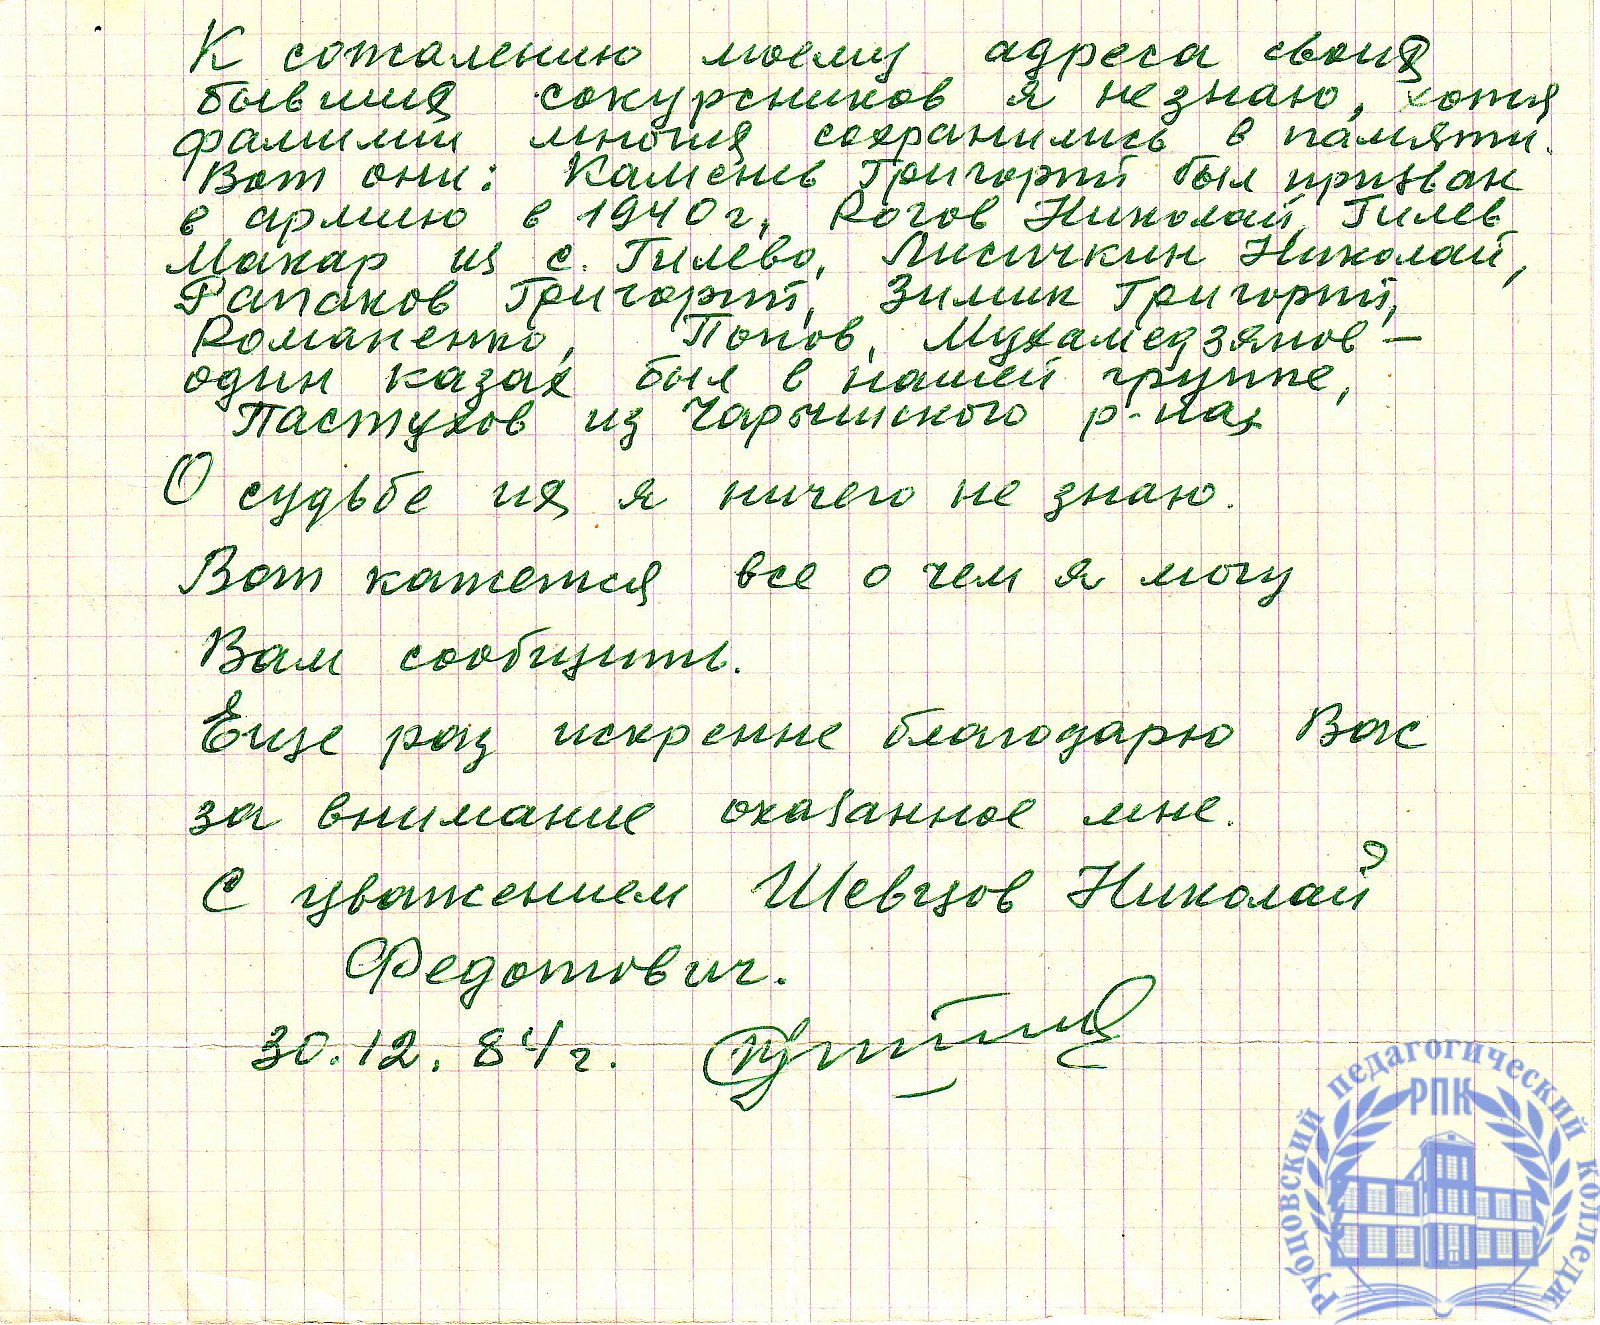 К сожалению моему адреса своих
бывших сокурсников я не знаю, хотя
фамилии многих сохранились в памяти.
Вот они: Каменев Григорий был призван
в армию в 1940 г, Рогов Николай, Гилев
Макар из с. Гилево, Лисичкин Николай,
Рапаков Григорий, Зимин Григорий,
Романенко, Попов, Мухамедзянов –
один казах был в нашей группе,
Пастухов из Чарышского р-на,
О судьбе их я ничего не знаю.
Вот кажется все о чем я могу
Вам сообщить.
Еще раз искренне благодарю Вас
за внимание оказанное мне.
С уважением Шевцов Николай
Федотович.
30.12.84 г.
Рубцовский педагогический колледж
РПК